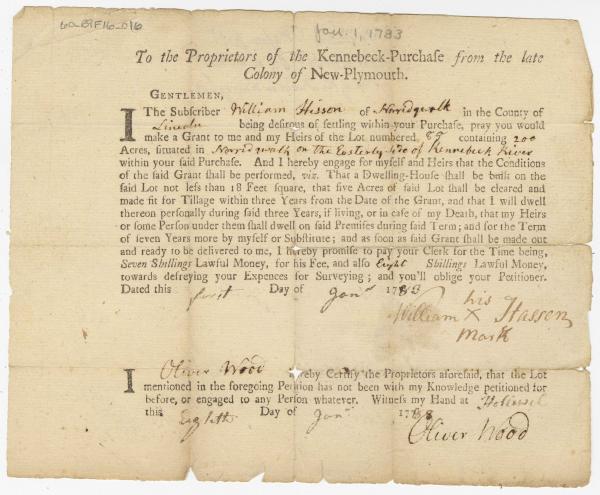 Jan. 1, 1783
To the Proprietors of the Kennebeck-Purchaſe from the late
Colony of New-Plymouth.
GENTLEMEN,
I The Subſcriber William Hisson of Norridgwalk in the County of
Lincoln being deſirous of ſettling within your Purchaſe, pray you would
make a Grant to me and my Heirs of the Lot numbered 85 containing 200
Acres, ſituated in Norridgwalk on the Easterly side of Kennebeck River
within your ſaid Purchaſe. And I hereby engage for myſelf and Heirs that the Conditions
of the ſaid Grant ſhall be performed, viz. That a Dwelling-Houſe ſhall be built on the
ſaid Lot not leſs than 18 Feet ſquare, that five Acres of ſaid Lot ſhall be cleared and
made fit for Tillage within three Years from the Date of the Grant, and that I will dwell
thereon perſonally during ſaid three Years, if living, or in caſe of my Death, that my Heirs
or ſome Perſon under them ſhall dwell on ſaid Premiſes during ſaid Term; and for the Term
of ſeven Years more by myſelf or Subſtitute; and as ſoon as ſaid Grant ſhall be made out
and ready to be delivered to me, I hereby promiſe to pay your Clerk for the Time being,
Seven Shillings Lawful Money, for his Fee, and alſo Eight Shillings Lawful Money,
towards defreying your Expences for Surveying; and you'll oblige your Petitioner.
Dated this first Day of Janr 1783
his
William X Hassen
mark
I Oliver Wood hereby Certify the Proprietors aforeſaid, that the Lot
mentioned in the foregoing Petition has not been with my Knowledge petitioned for
before, or engaged to any Perſon whatever. Witneſs my Hand at
this Eighth Day of Janr
Oliver Wood